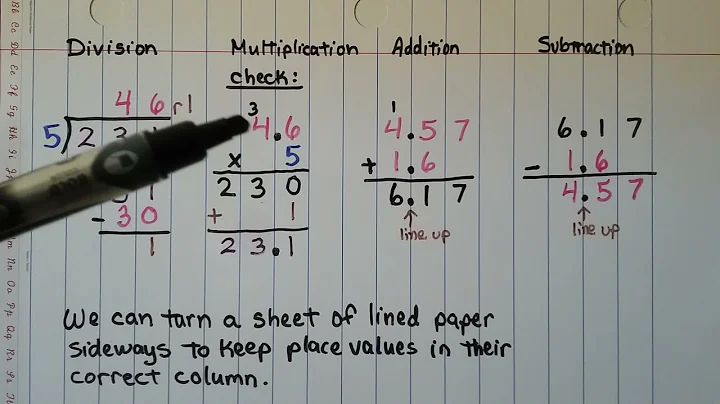 Division Multiplication Addition Subtraction
check:
4 6 r1
5 2 3
3
4.6
x 5
2 3 0
+ 1
2 3.1
- 3 0
1
1
4.5 7
+ 1.6
6.1 7
line up
6.1 7
- 1.6
4.5 7
line up
We can turn a sheet of lined paper
sideways to keep place values in their
correct column.